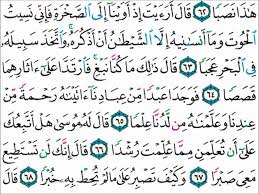 هَٰذَا نَصَبًا ٦٢ قَالَ أَرَءَيْتَ إِذْ أَوَيْنَا إِلَى الصَّخْرَةِ فَإِنِّي نَسِيتُ
الْحُوتَ وَمَا أَنسَىٰنِيهُ إِلَّا الشَّيْطَٰنُ أَنْ أَذْكُرَهُۥ وَاتَّخَذَ سَبِيلَهُۥ
فِي الْبَحْرِ عَجَبًا ٦٣ قَالَ ذَٰلِكَ مَا كُنَّا نَبْغِ فَارْتَدَّا عَلَىٰ ءَاثَارِهِمَا
قَصَصًا ٦٤ فَوَجَدَا عَبْدًا مِّنْ عِبَادِنَا ءَاتَيْنَٰهُ رَحْمَةً مِّنْ
عِندِنَا وَعَلَّمْنَٰهُ مِن لَّدُنَّا عِلْمًا ٦٥ قَالَ لَهُۥ مُوسَىٰ هَلْ أَتَّبِعُكَ
عَلَىٰ أَن تُعَلِّمَنِ مِمَّا عُلِّمْتَ رُشْدًا ٦٦ قَالَ إِنَّكَ لَن تَسْتَطِيعَ
مَعِيَ صَبْرًا ٦٧ وَكَيْفَ تَصْبِرُ عَلَىٰ مَا لَمْ تُحِطْ بِهِۦ خُبْرًا ٦٨